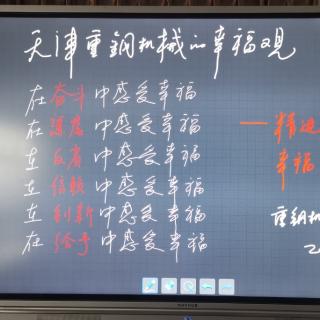 天津重钢机械的幸福观
在奋斗中感受幸福
在 中感受幸福
在反省中感受幸福
在信赖中感受幸福
在创新中感受幸福
在给予中感受幸福
——精进
幸福
重钢机